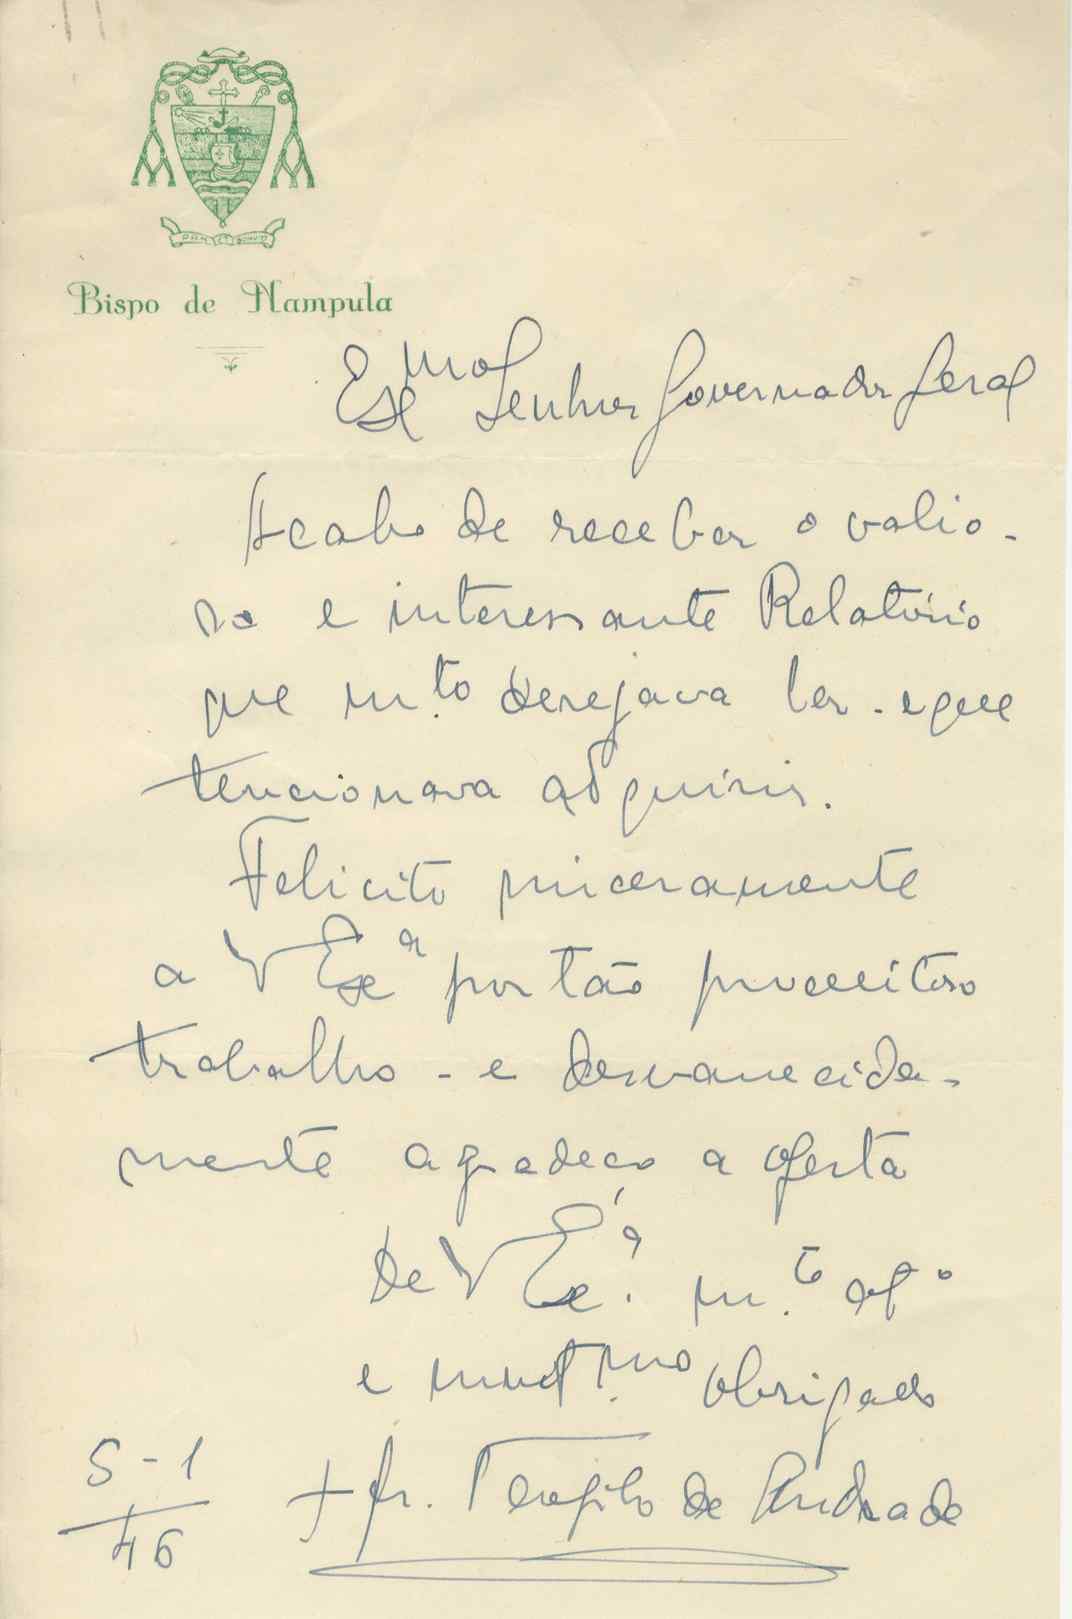 Bispo de Nampula
Exmo Senhor Governador Geral
Acabo de receber o valio-
so e interessante Relatório
que m.to desejava ler - e que
tencionava adquirir.
Felicito sinceramente
a V Exa por tão proveitoso
trabalho - e desvanecida-
mente agradeço a oferta
de V Exa. m.to at.o
e muit.mo obrigado
5-1
46
+ fr. Teofilo de Andrade